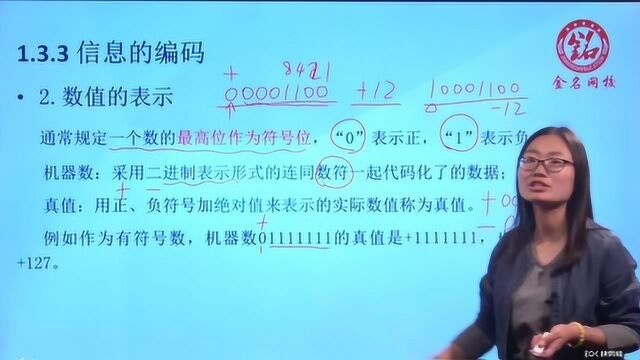 1.3.3 信息的编码
金名网校
+ 8421
• 2. 数值的表示
00001100 +12 10001100
-12
通常规定一个数的最高位作为符号位，“0”表示正，“1”表示负
机器数：采用二进制表示形式的连同数符一起代码化了的数据；
+ -
真值：用正、负符号加绝对值来表示的实际数值称为真值。
例如作为有符号数，机器数01111111的真值是+1111111，
+127。